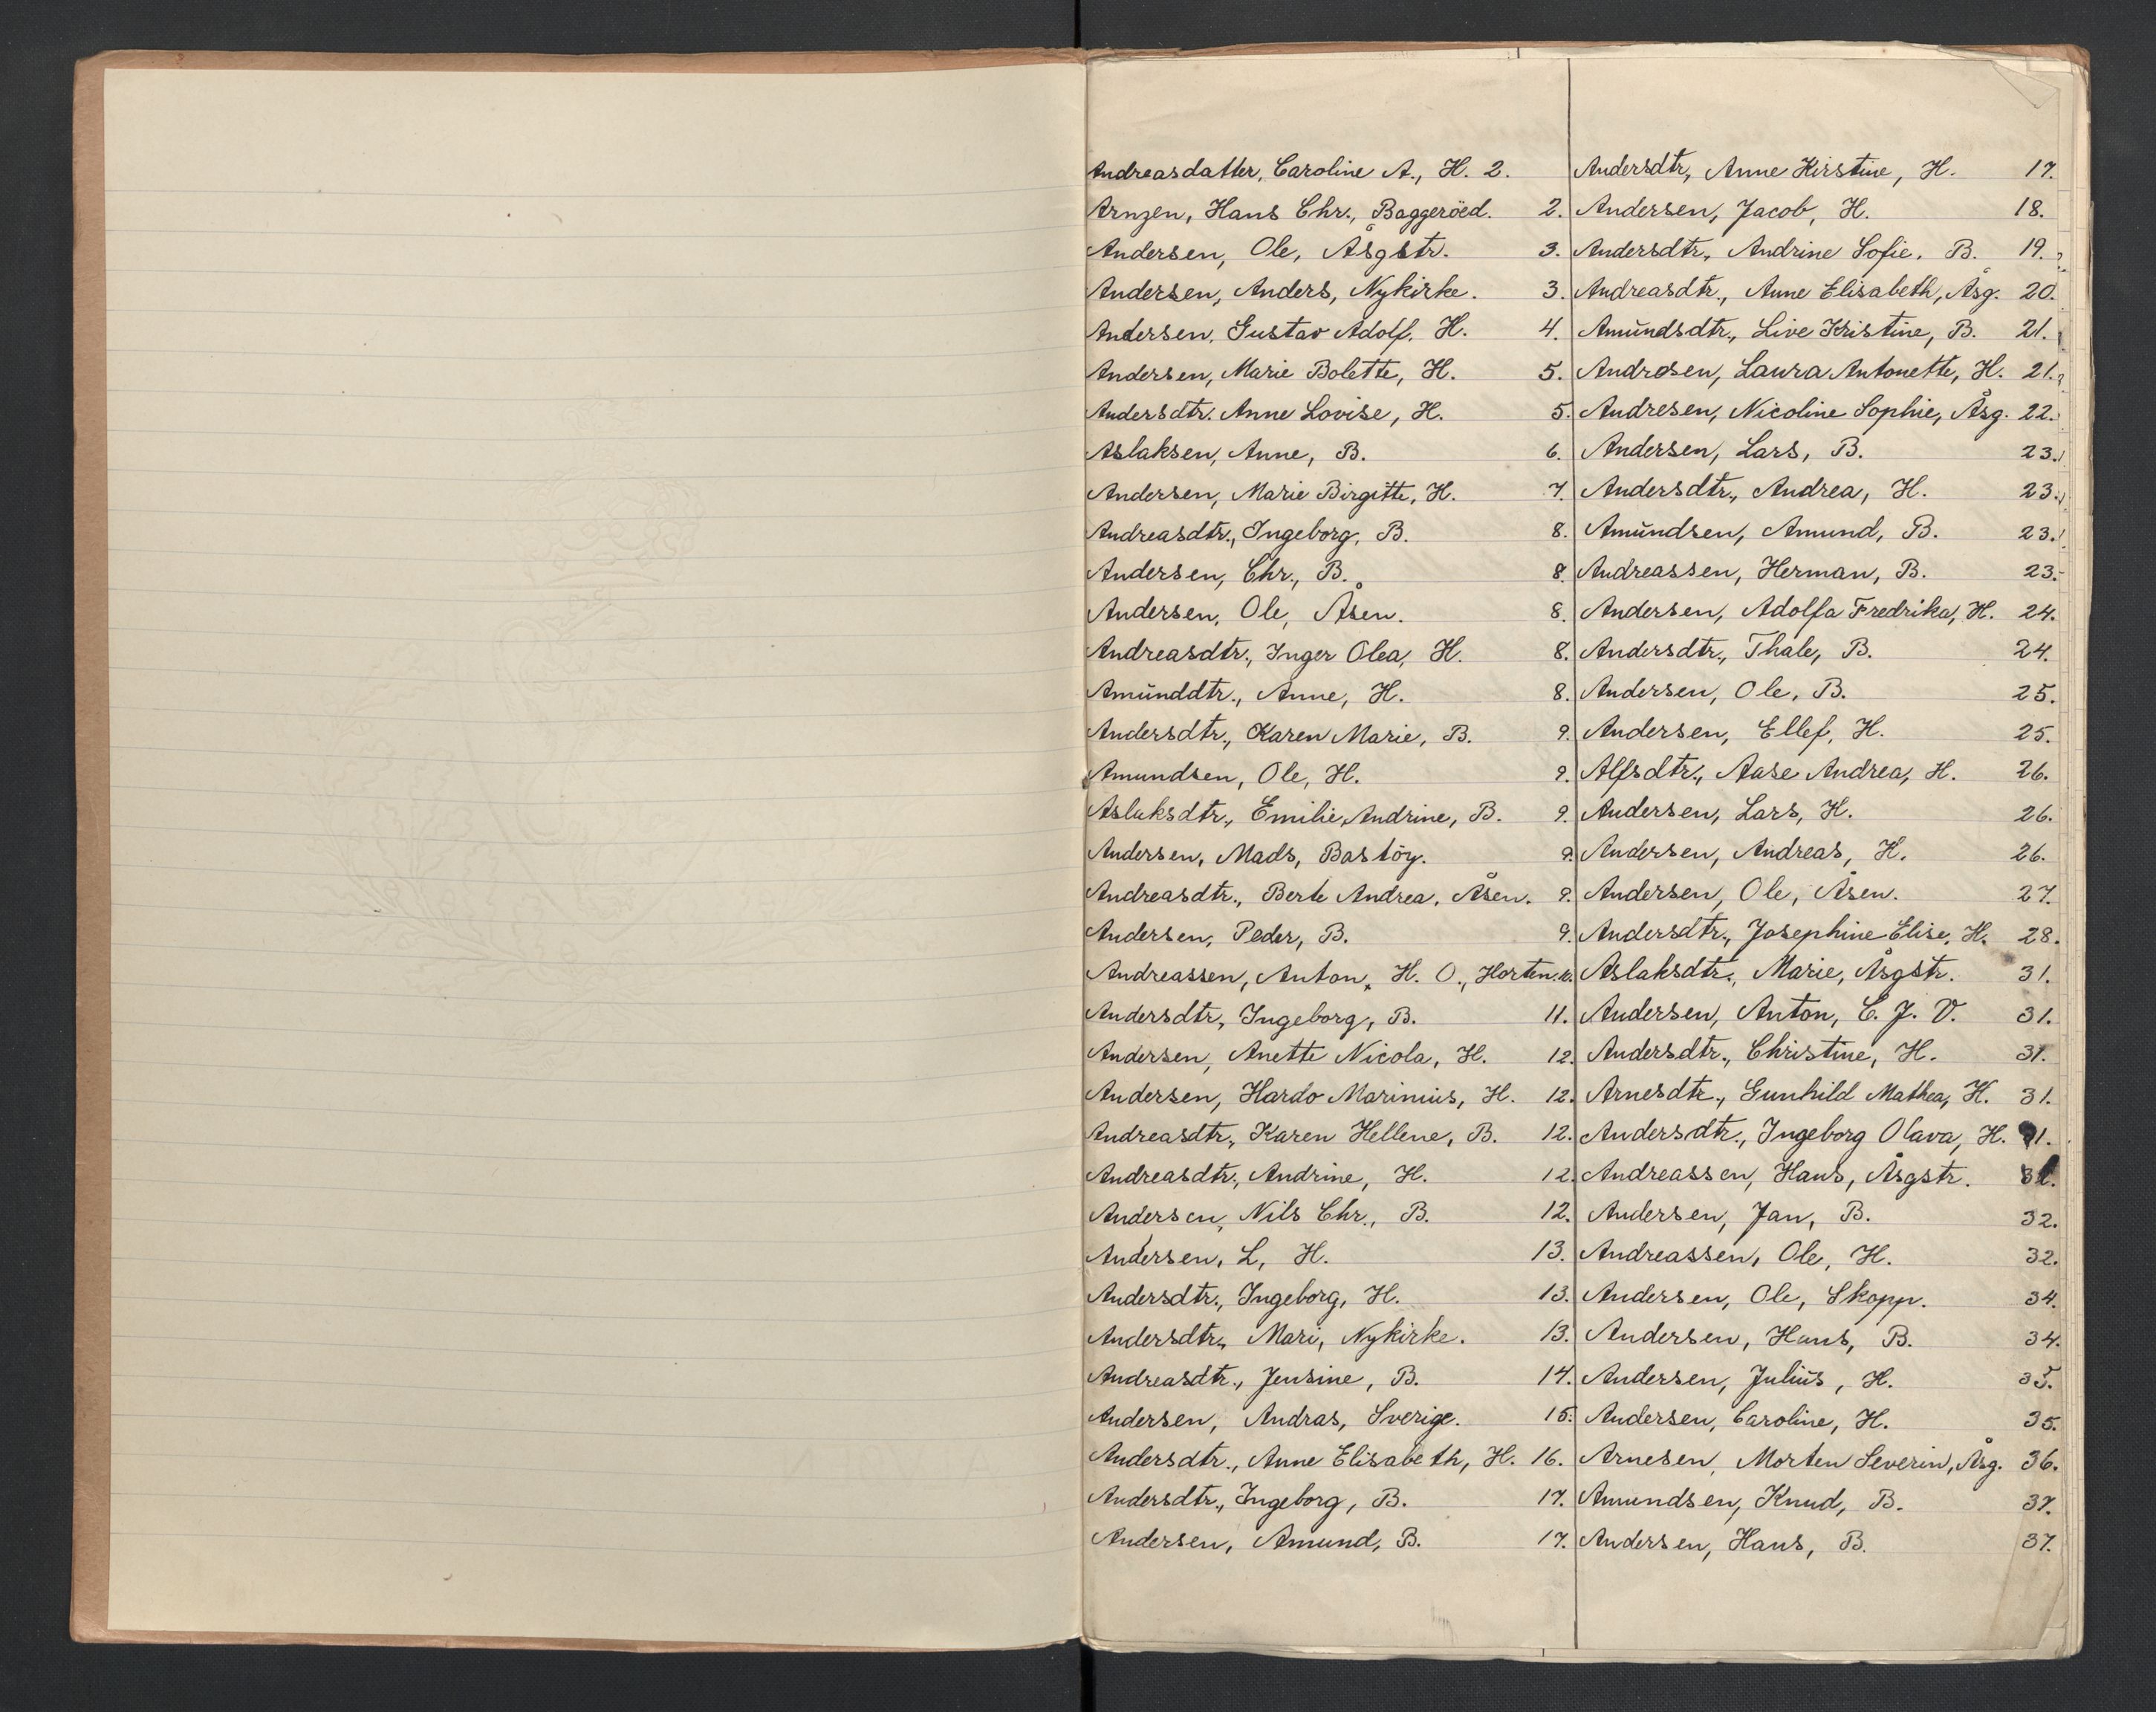 Andreasdatter, Caroline A., H. 2.
Arnzen, Hans Chr., Baggeröed. 2.
Andersen, Ole, Åsgstr. 3.
Andersen, Anders, Nykirke. 3.
Andersen, Gustav Adolf, H. 4.
Andersen, Marie Bolette, H. 5.
Andersdtr. Anne Lovise, H. 5.
Aslaksen, Anne, B. 6.
Andersen, Marie Birgitte, H. 7.
Andreasdtr., Ingeborg, B. 8.
Andersen, Chr., B. 8.
Andersen, Ole, Åsen. 8.
Andreasdtr., Inger Olea, H. 8.
Amunddtr., Anne, H. 8.
Andersdtr., Karen Marie, B. 9.
Amundsen, Ole, H. 9.
Aslaksdtr., Emilie Andrine, B. 9.
Andersen, Mads, Bastöy. 9.
Andreasdtr., Berte Andrea, Åsen. 9.
Andersen, Peder, B. 9.
Andreassen, Anton, H. O., Horten. 10.
Andersdtr., Ingeborg, B. 11.
Andersen, Anette Nicola, H. 12.
Andersen, Hardo Marinius, H. 12.
Andreasdtr., Karen Hellene, B. 12.
Andreasdtr., Andrine, H. 12.
Andersen, Nils Chr., B. 12.
Andersen, L, H. 13.
Andersdtr., Ingeborg, H. 13.
Andersdtr., Mari, Nykirke. 13.
Andreasdtr., Jensine, B. 14.
Andersen, Andras, Sverige. 15.
Andersdtr., Anne Elisabeth, H. 16.
Andersdtr., Ingeborg, B. 17.
Andersen, Amund, B. 17.
Andersdtr, Anne Kirstine, H. 17.
Andersen, Jacob, H. 18.
Andersdtr., Andrine Sofie, B. 19.
Andreasdtr., Anne Elisabeth, Åsg. 20.
Amundsdtr., Live Kristine, B. 21.
Andresen, Laura Antonette, H. 21.
Andresen, Nicoline Sophie, Åsg. 22.
Andersen, Lars, B. 23.
Andersdtr., Andrea, H. 23.
Amundsen, Amund, B. 23.
Andreassen, Herman, B. 23.
Andersen, Adolfa Fredrika, H. 24.
Andersdtr., Thale, B. 24.
Andersen, Ole, B. 25.
Andersen, Ellef, H. 25.
Alfsdtr., Aase Andrea, H. 26.
Andersen, Lars, H. 26.
Andersen, Andreas, H. 26.
Andersen, Ole, Åsen. 27.
Andersdtr., Josephine Elise, H. 28.
Aslaksdtr., Marie, Åsgstr. 31.
Andersen, Anton, C. J. V. 31.
Andersdtr., Christine, H. 31.
Arnesdtr., Gunhild Mathea, H. 31.
Andersdtr., Ingeborg Olava, H. 31.
Andreassen, Hans, Åsgstr.
Andersen, Jan, B. 32.
Andreassen, Ole, H. 32.
Andersen, Ole, Skopp. 34.
Andersen, Hans, B. 34.
Andersen, Julius, H. 35.
Andersen, Caroline, H. 35.
Arnesen, Morten Severin, Åsg. 36.
Amundsen, Knud, B. 37.
Andersen, Hans, B. 37.